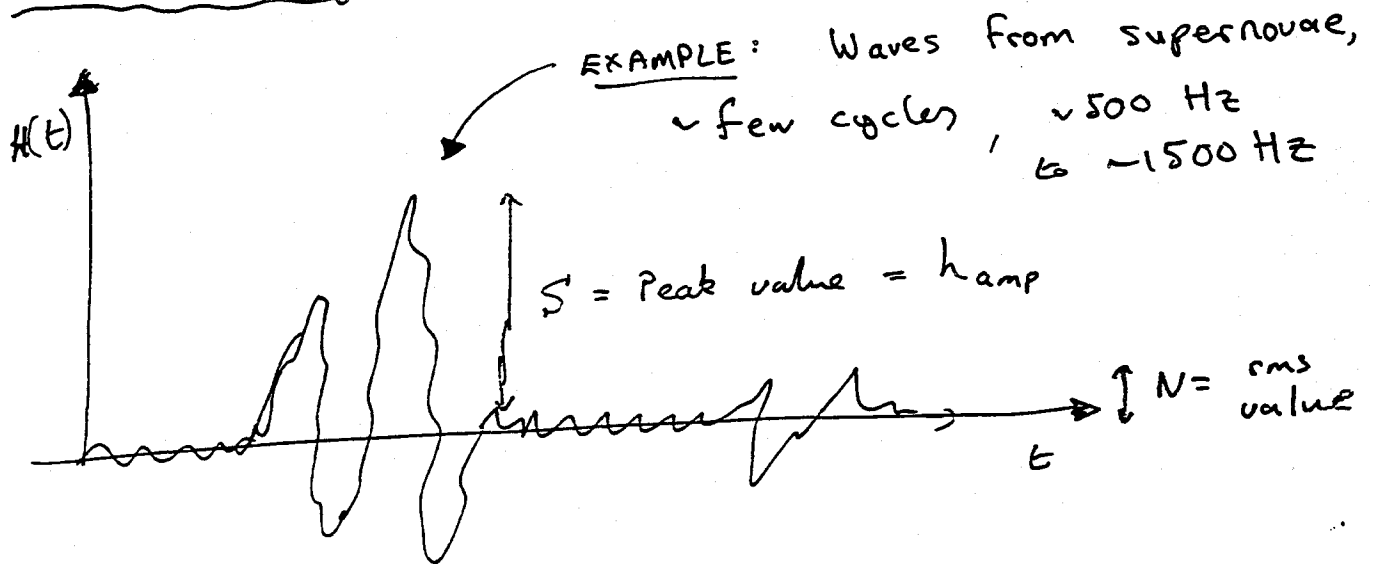 EXAMPLE: Waves from supernovae,
~ few cycles, ~500 Hz
to ~1500 Hz
H(t)
S = Peak value = h amp
N = rms
value
t